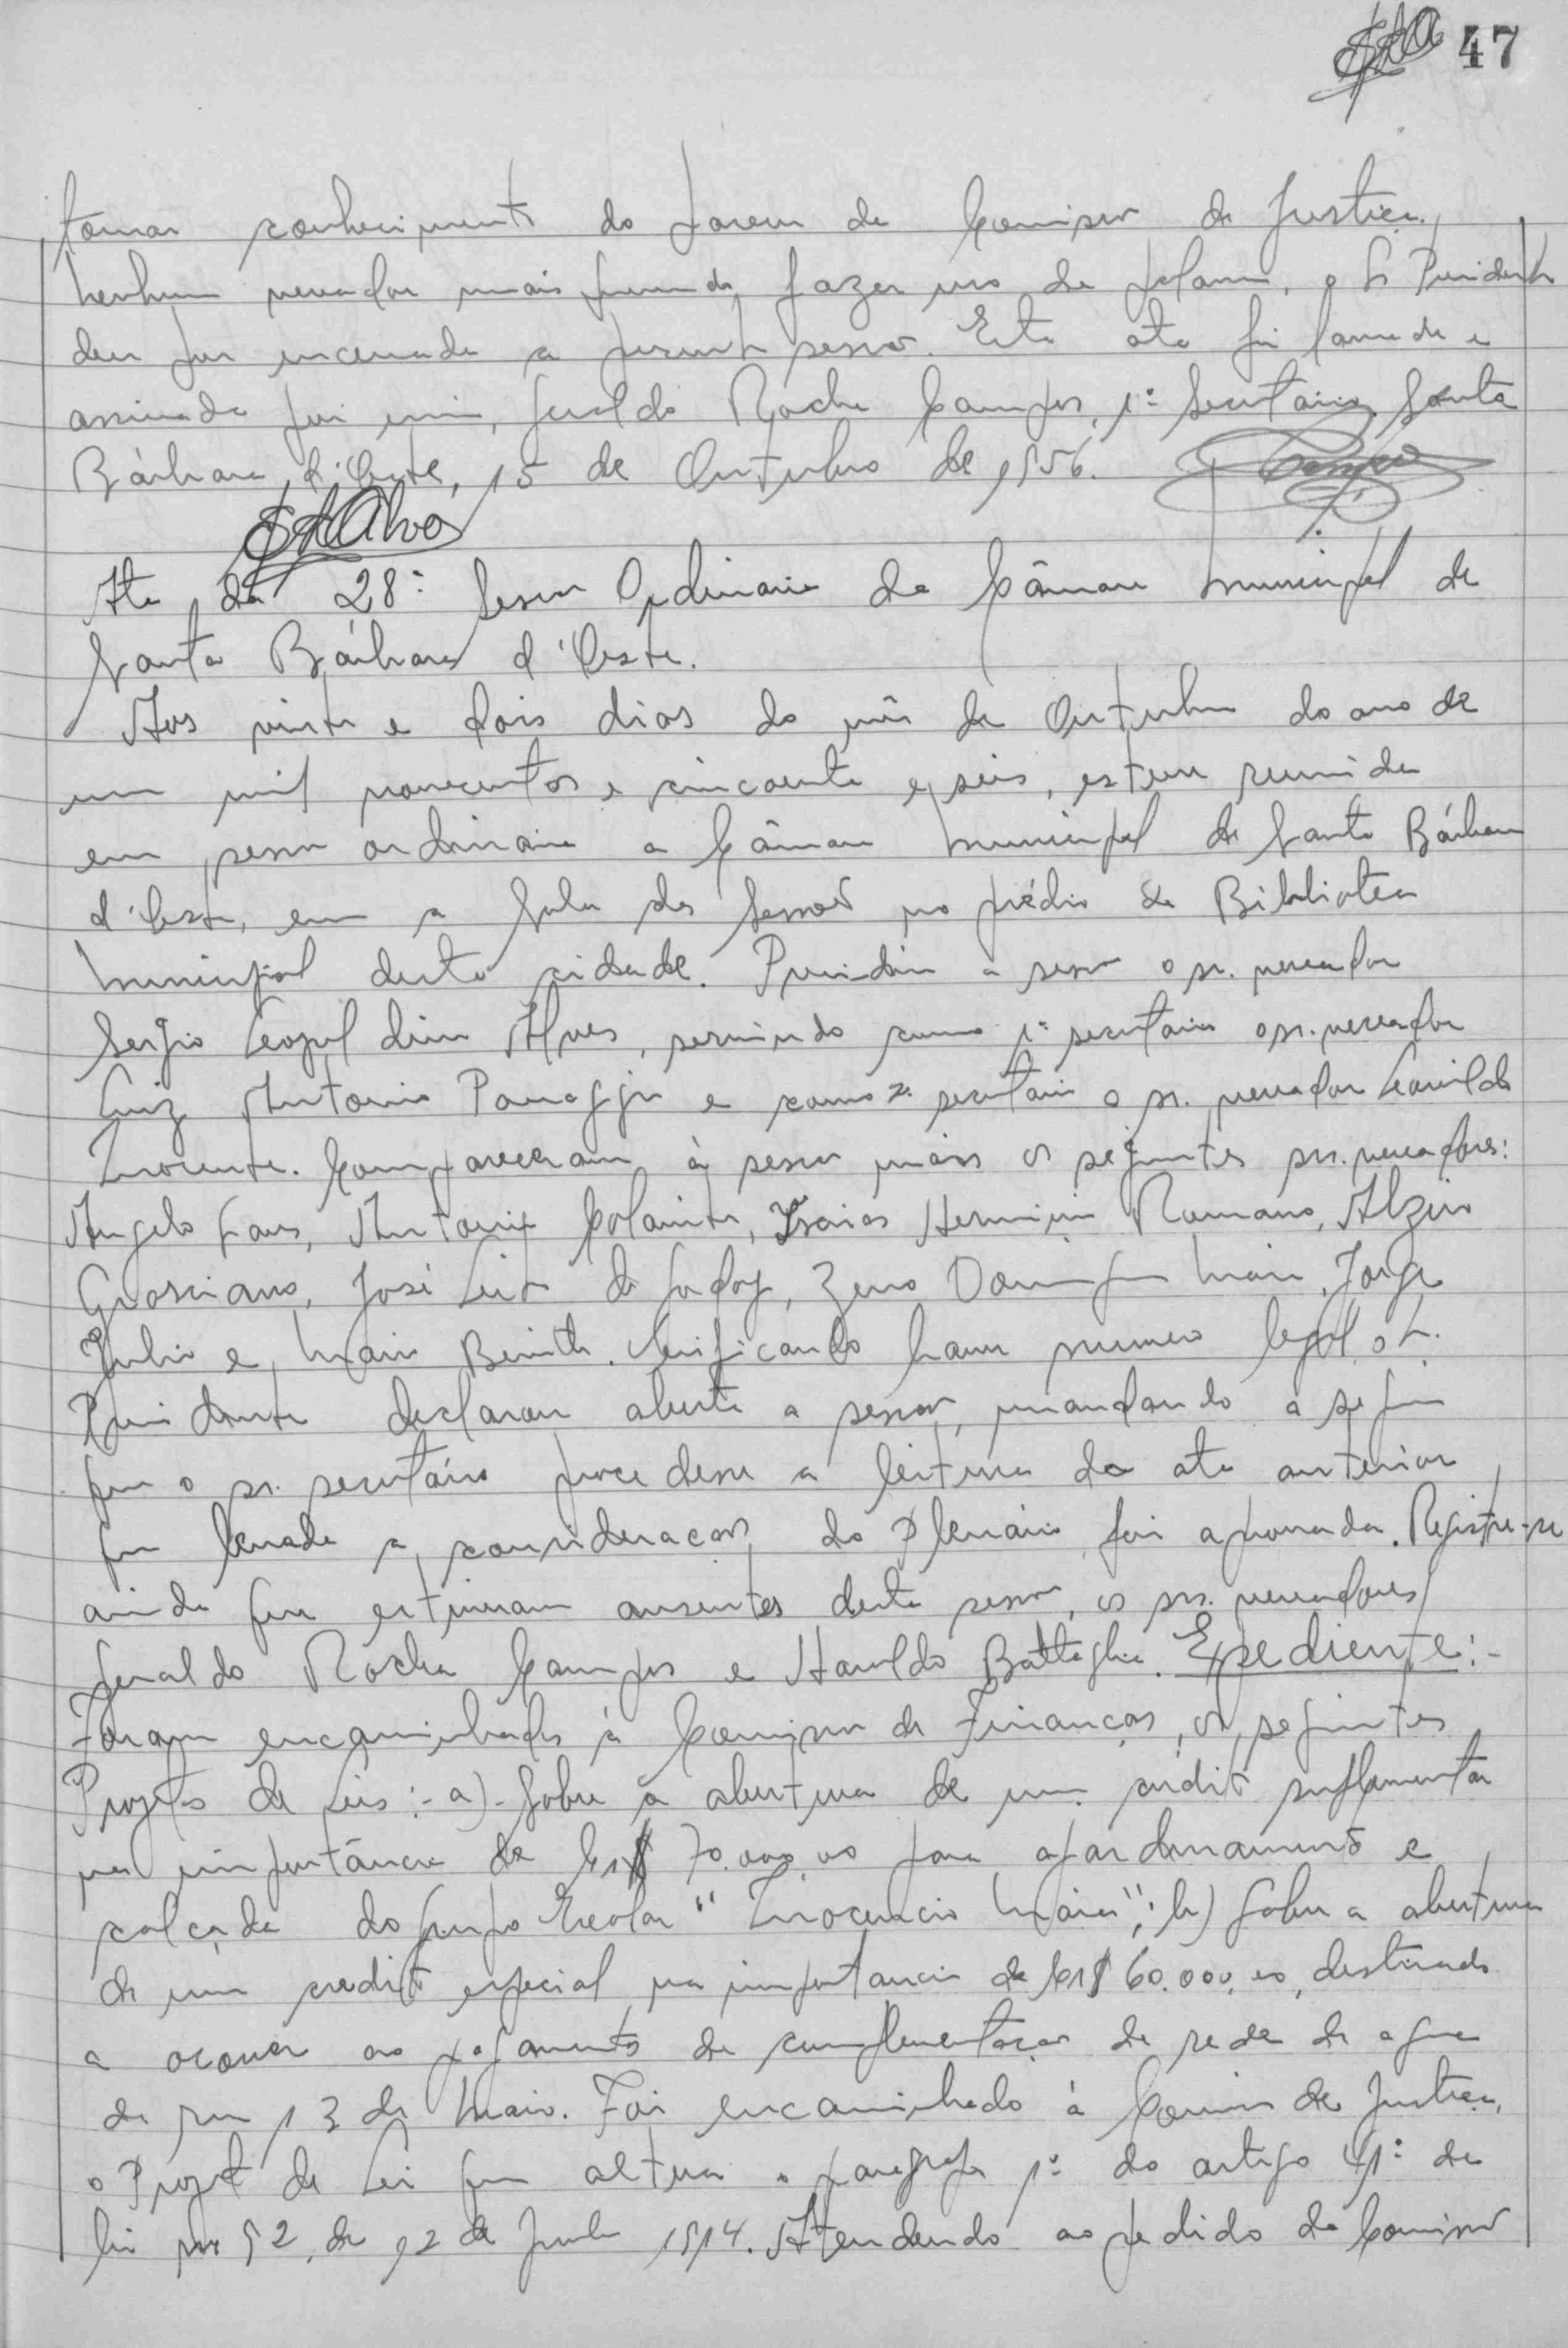 47
tomar conhecimento do parecer da Comissão de Justiça.
Nenhum vereador mais querendo fazer uso da palavra, o Sr Presidente
deu por encerrada a presente sessão. Esta ata foi lavrada e
assinada por mim, Geraldo Rocha Campos, 1º Secretario. Santa
Bárbara d'Oeste, 15 de Outubro de 1956.
SLAlves
Ata da 28ª Sessão Ordinaria da Câmara Municipal de
Santa Bárbara d'Oeste.
Aos vinte e dois dias do mês de Outubro do ano de
um mil novecentos e cincoenta e seis, esteve reunida
em sessão ordinaria a Câmara Municipal de Santa Bárbara
d'Oeste, em a Sala das Sessões no prédio da Biblioteca
Municipal desta cidade. Presidiu a sessão o sr. vereador
Sergio Leopoldino Alves, servindo como 1º secretario o sr. vereador
Luiz Antonio Panaggio e como 2º secretario o sr. vereador Leonildo
Inocente. Compareceram à sessão mais os seguintes srs. vereadores:
Angelo Sans, Antonio Colainte, Isaias Herminio Romano, Alziro
Grosciano, José Leite de Godoy, Zeno Domingos Maia, Jorge
Julio e Mario Benith. Verificando haver numero legal, o Sr.
Presidente declarou aberta a sessão, mandando a seguir
que o sr. secretário procedesse a leitura da ata anterior
que levada a consideração do Plenário, foi aprovada. Registre-se
ainda que estiveram ausentes desta sessão, os srs. vereadores
Geraldo Rocha Campos e Haroldo Battaglia. Expediente:-
Foram encaminhados à Comissão de Finanças, os seguintes
Projetos de Leis:- a)- Sobre a abertura de um crédito suplementar
na importância de Cr$ 70.000,00 para ajardinamento e
calçada do Grupo Escolar "Inocencio Maia"; b) Sobre a abertura
de um credito especial na importancia de Cr$ 60.000,00, destinado
a ocorrer ao pagamento da complementação da rede de agua
da rua 13 de Maio. Foi encaminhado à Comissão de Justiça,
o Projeto de Lei que altera o paragrafo 1º do artigo 41º da
lei nº 52, de 12 de Junho 1914. Atendendo ao pedido da Comissão